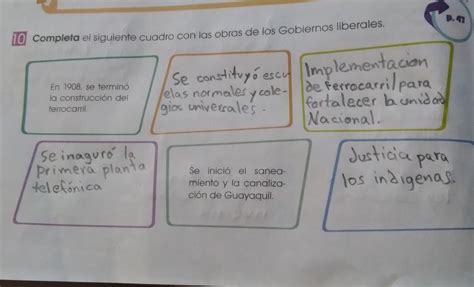 p. 47
10 Completa el siguiente cuadro con las obras de los Gobiernos liberales.
En 1908, se terminó
la construcción del
ferrocarril.
Se constituyó escu
elas normales y cole-
gios universales.
Implementación
de ferrocarril para
fortalecer la unidad
Nacional.
Se inaguró la
primera planta
telefónica
Se inició el sanea-
miento y la canaliza-
ción de Guayaquil.
Justicia para
los indigenas.